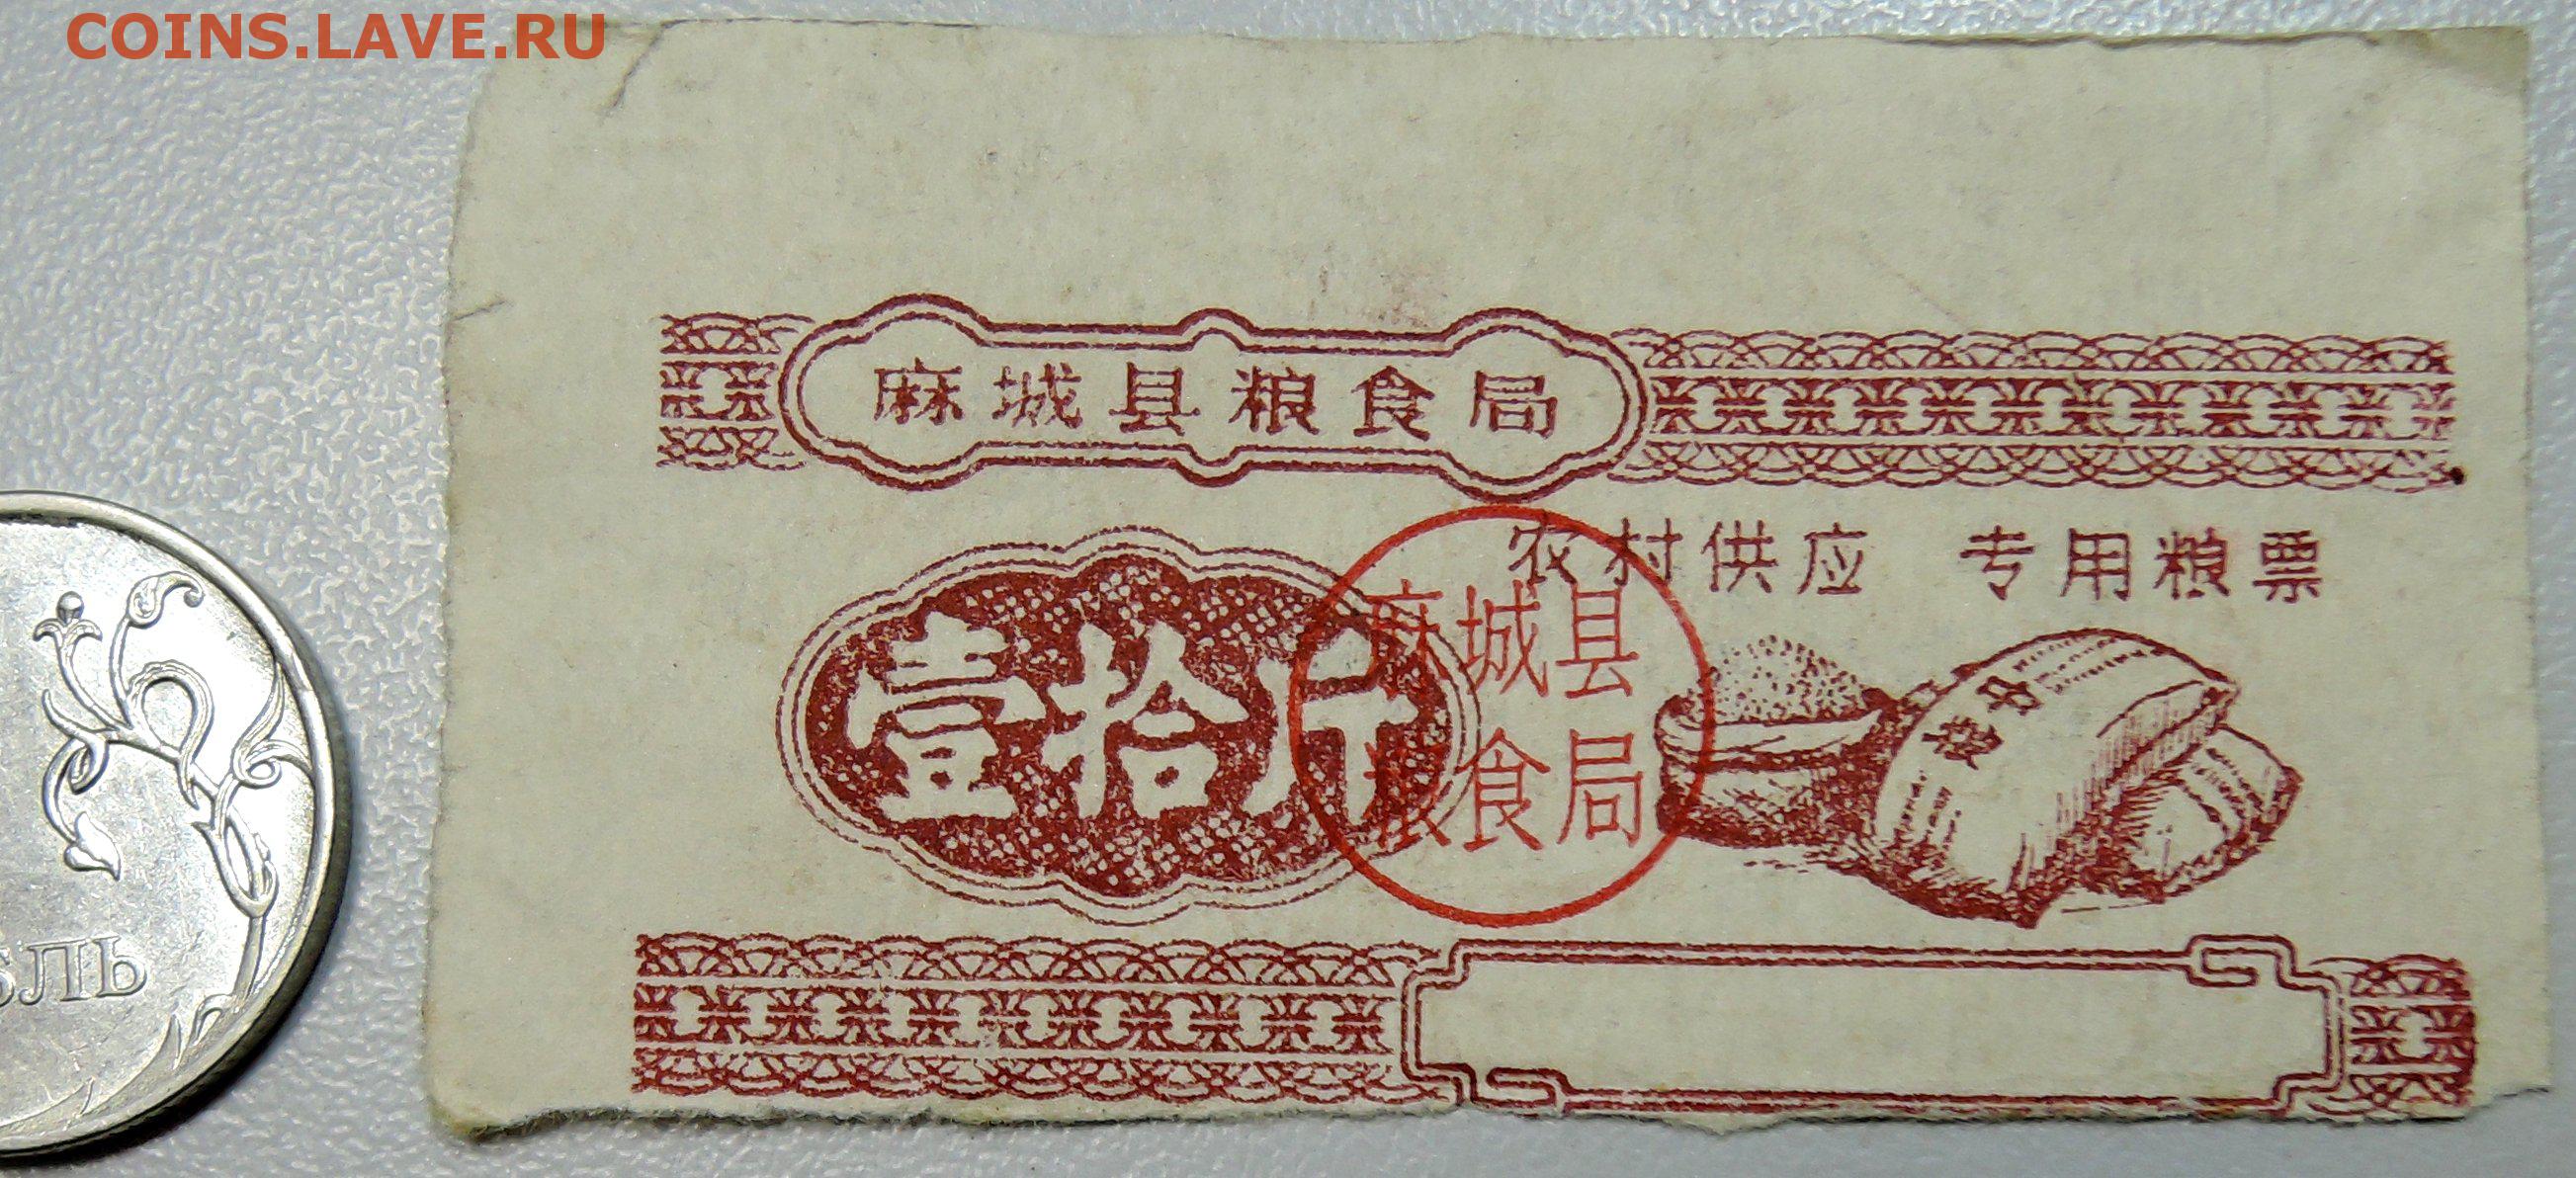 COINS.LAVE.RU
麻城县粮食局
农村供应 专用粮票
壹拾斤
麻城县
粮食局
БЛЬ